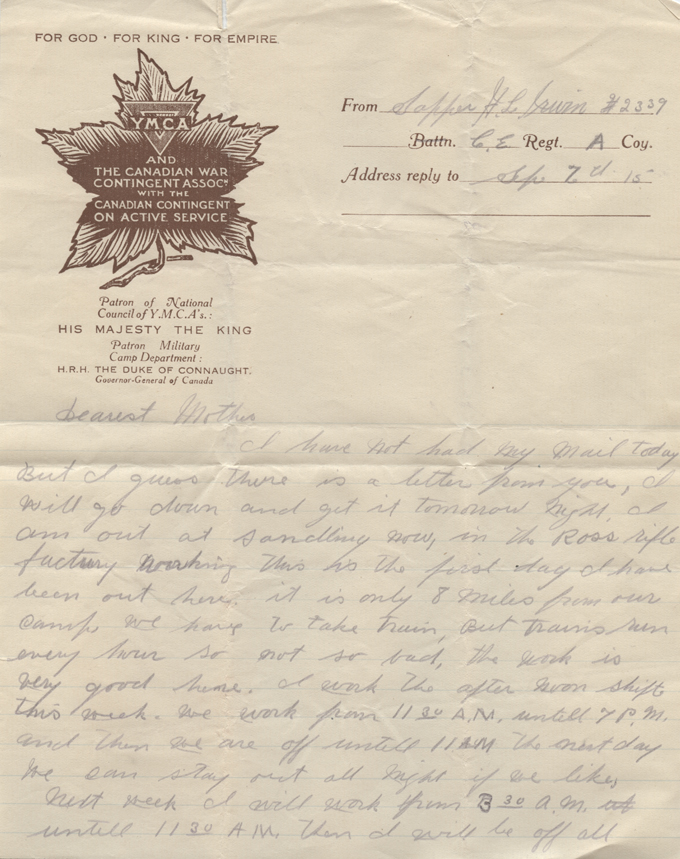 FOR GOD · FOR KING · FOR EMPIRE
YMCA
AND
THE CANADIAN WAR
CONTINGENT ASSOCN
WITH THE
CANADIAN CONTINGENT
ON ACTIVE SERVICE
Patron of National
Council of Y.M.C.A's.:
HIS MAJESTY THE KING
Patron Military
Camp Department:
H.R.H. THE DUKE OF CONNAUGHT.
Governor-General of Canada
From Sapper H L Irwin #2339
Battn. C.E Regt. A Coy.
Address reply to Sep 7th 15
Dearest Mother
I have not had my mail today
But I guess there is a letter from you, I
will go down and get it tomorrow night, I
am out at Sandling now, in the Ross rifle
factory working this is the first day I have
been out here. it is only 8 miles from our
camp we have to take train, But trains run
every hour so not so bad, the work is
very good here. I work the after noon shift
this week. we work from 11 30 A.M. untell 7 P.M.
and then we are off untell 11 AM the next day
we can stay out all night if we like,
Next week I will work from 3 30 A.M.
untell 11 30 A.M. Then I will be off all